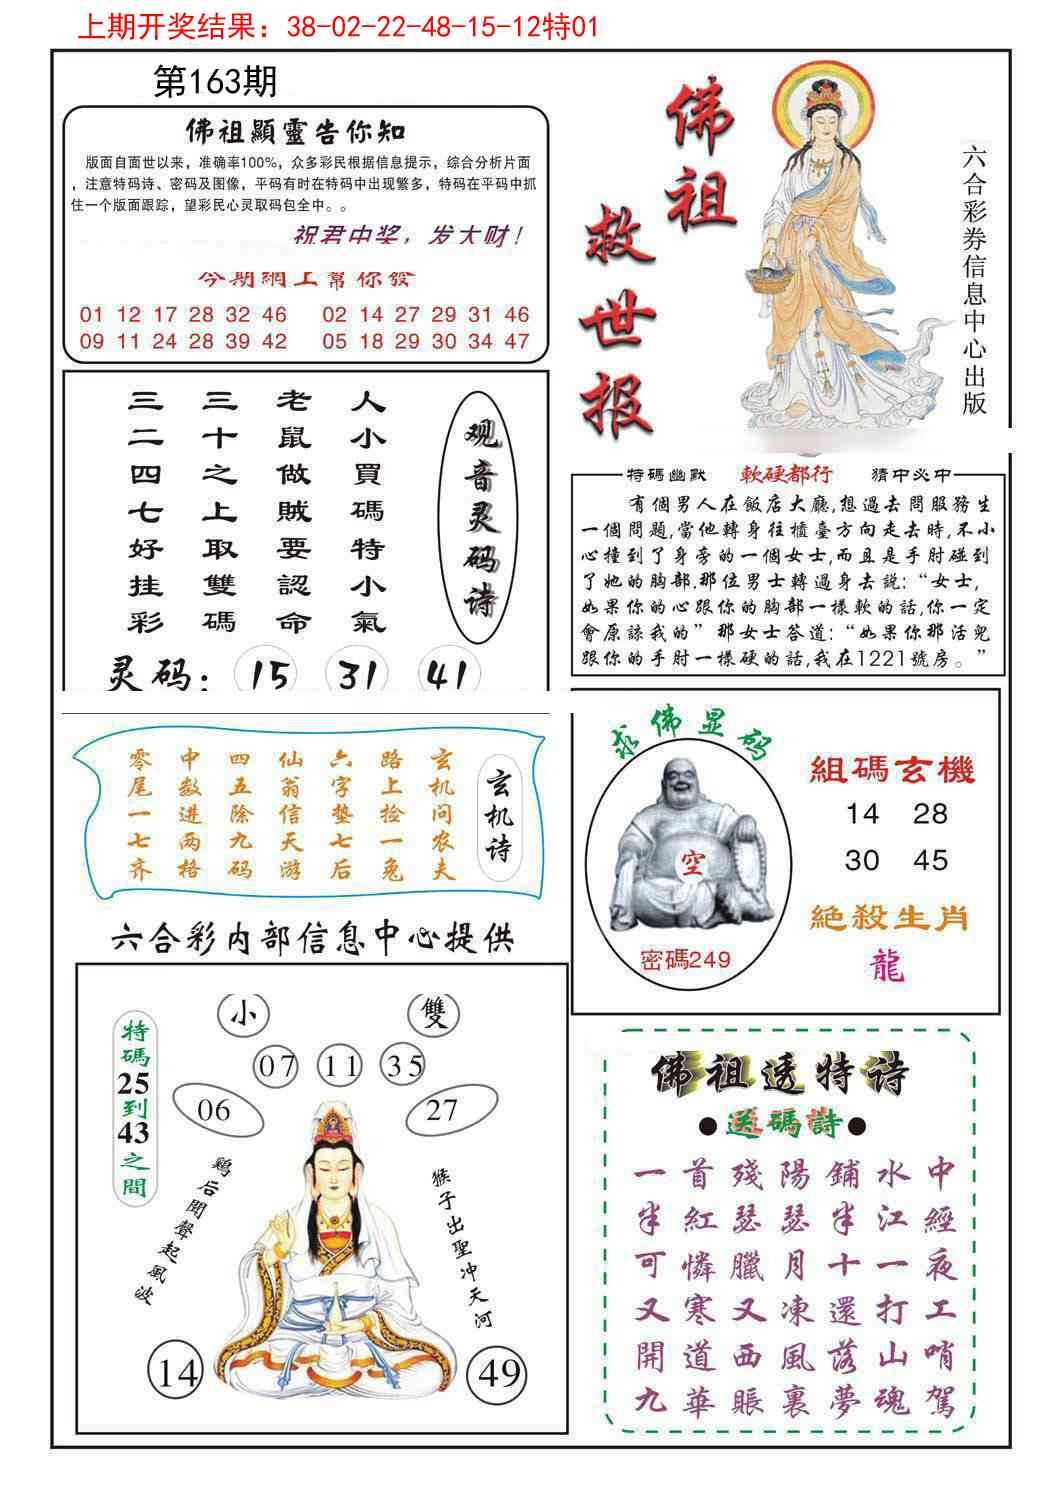 上期开奖结果：38-02-22-48-15-12特01
第163期
佛祖顯靈告你知
版面自面世以来，准确率100%，众多彩民根据信息提示，综合分析片面
，注意特码诗、密码及图像，平码有时在特码中出现繁多，特码在平码中抓
住一个版面跟踪，望彩民心灵取码包全中。。
祝君中奖，发大财！
今期網上幫你發
01 12 17 28 32 46 02 14 27 29 31 46
09 11 24 28 39 42 05 18 29 30 34 47
佛祖
救世报
六合彩券信息中心出版
观音灵码诗
人小買碼特小氣
老鼠做賊要認命
三十之上取雙碼
三二四七好挂彩
灵码：15 31 41
特碼幽默 軟硬都行 猜中必中
有個男人在飯店大廳,想過去問服務生
一個問題,當他轉身往櫃臺方向走去時,不小
心撞到了身旁的一個女士,而且是手肘碰到
了她的胸部.那位男士轉過身去説:“女士,
如果你的心跟你的胸部一樣軟的話,你一定
會原諒我的” 那女士答道:“如果你那活兒
跟你的手肘一樣硬的話,我在1221號房。”
玄机诗
玄机问农夫
路上捡一兔
六字垫七后
仙翁信天游
四五除九码
中数进两格
零尾一七齐
求佛显码
空
密碼249
組碼玄機
14 28
30 45
絕殺生肖
龍
六合彩内部信息中心提供
特碼25到43之間
小 雙
07 11 35
06 27
鷄后聞聲起風波
猴子出聖冲天河
14 49
佛祖透特诗
●送碼詩●
一首殘陽鋪水中
半紅瑟瑟半江經
可憐臘月十一夜
又寒又凍還打工
開道西風落山哨
九華賬裏夢魂駕